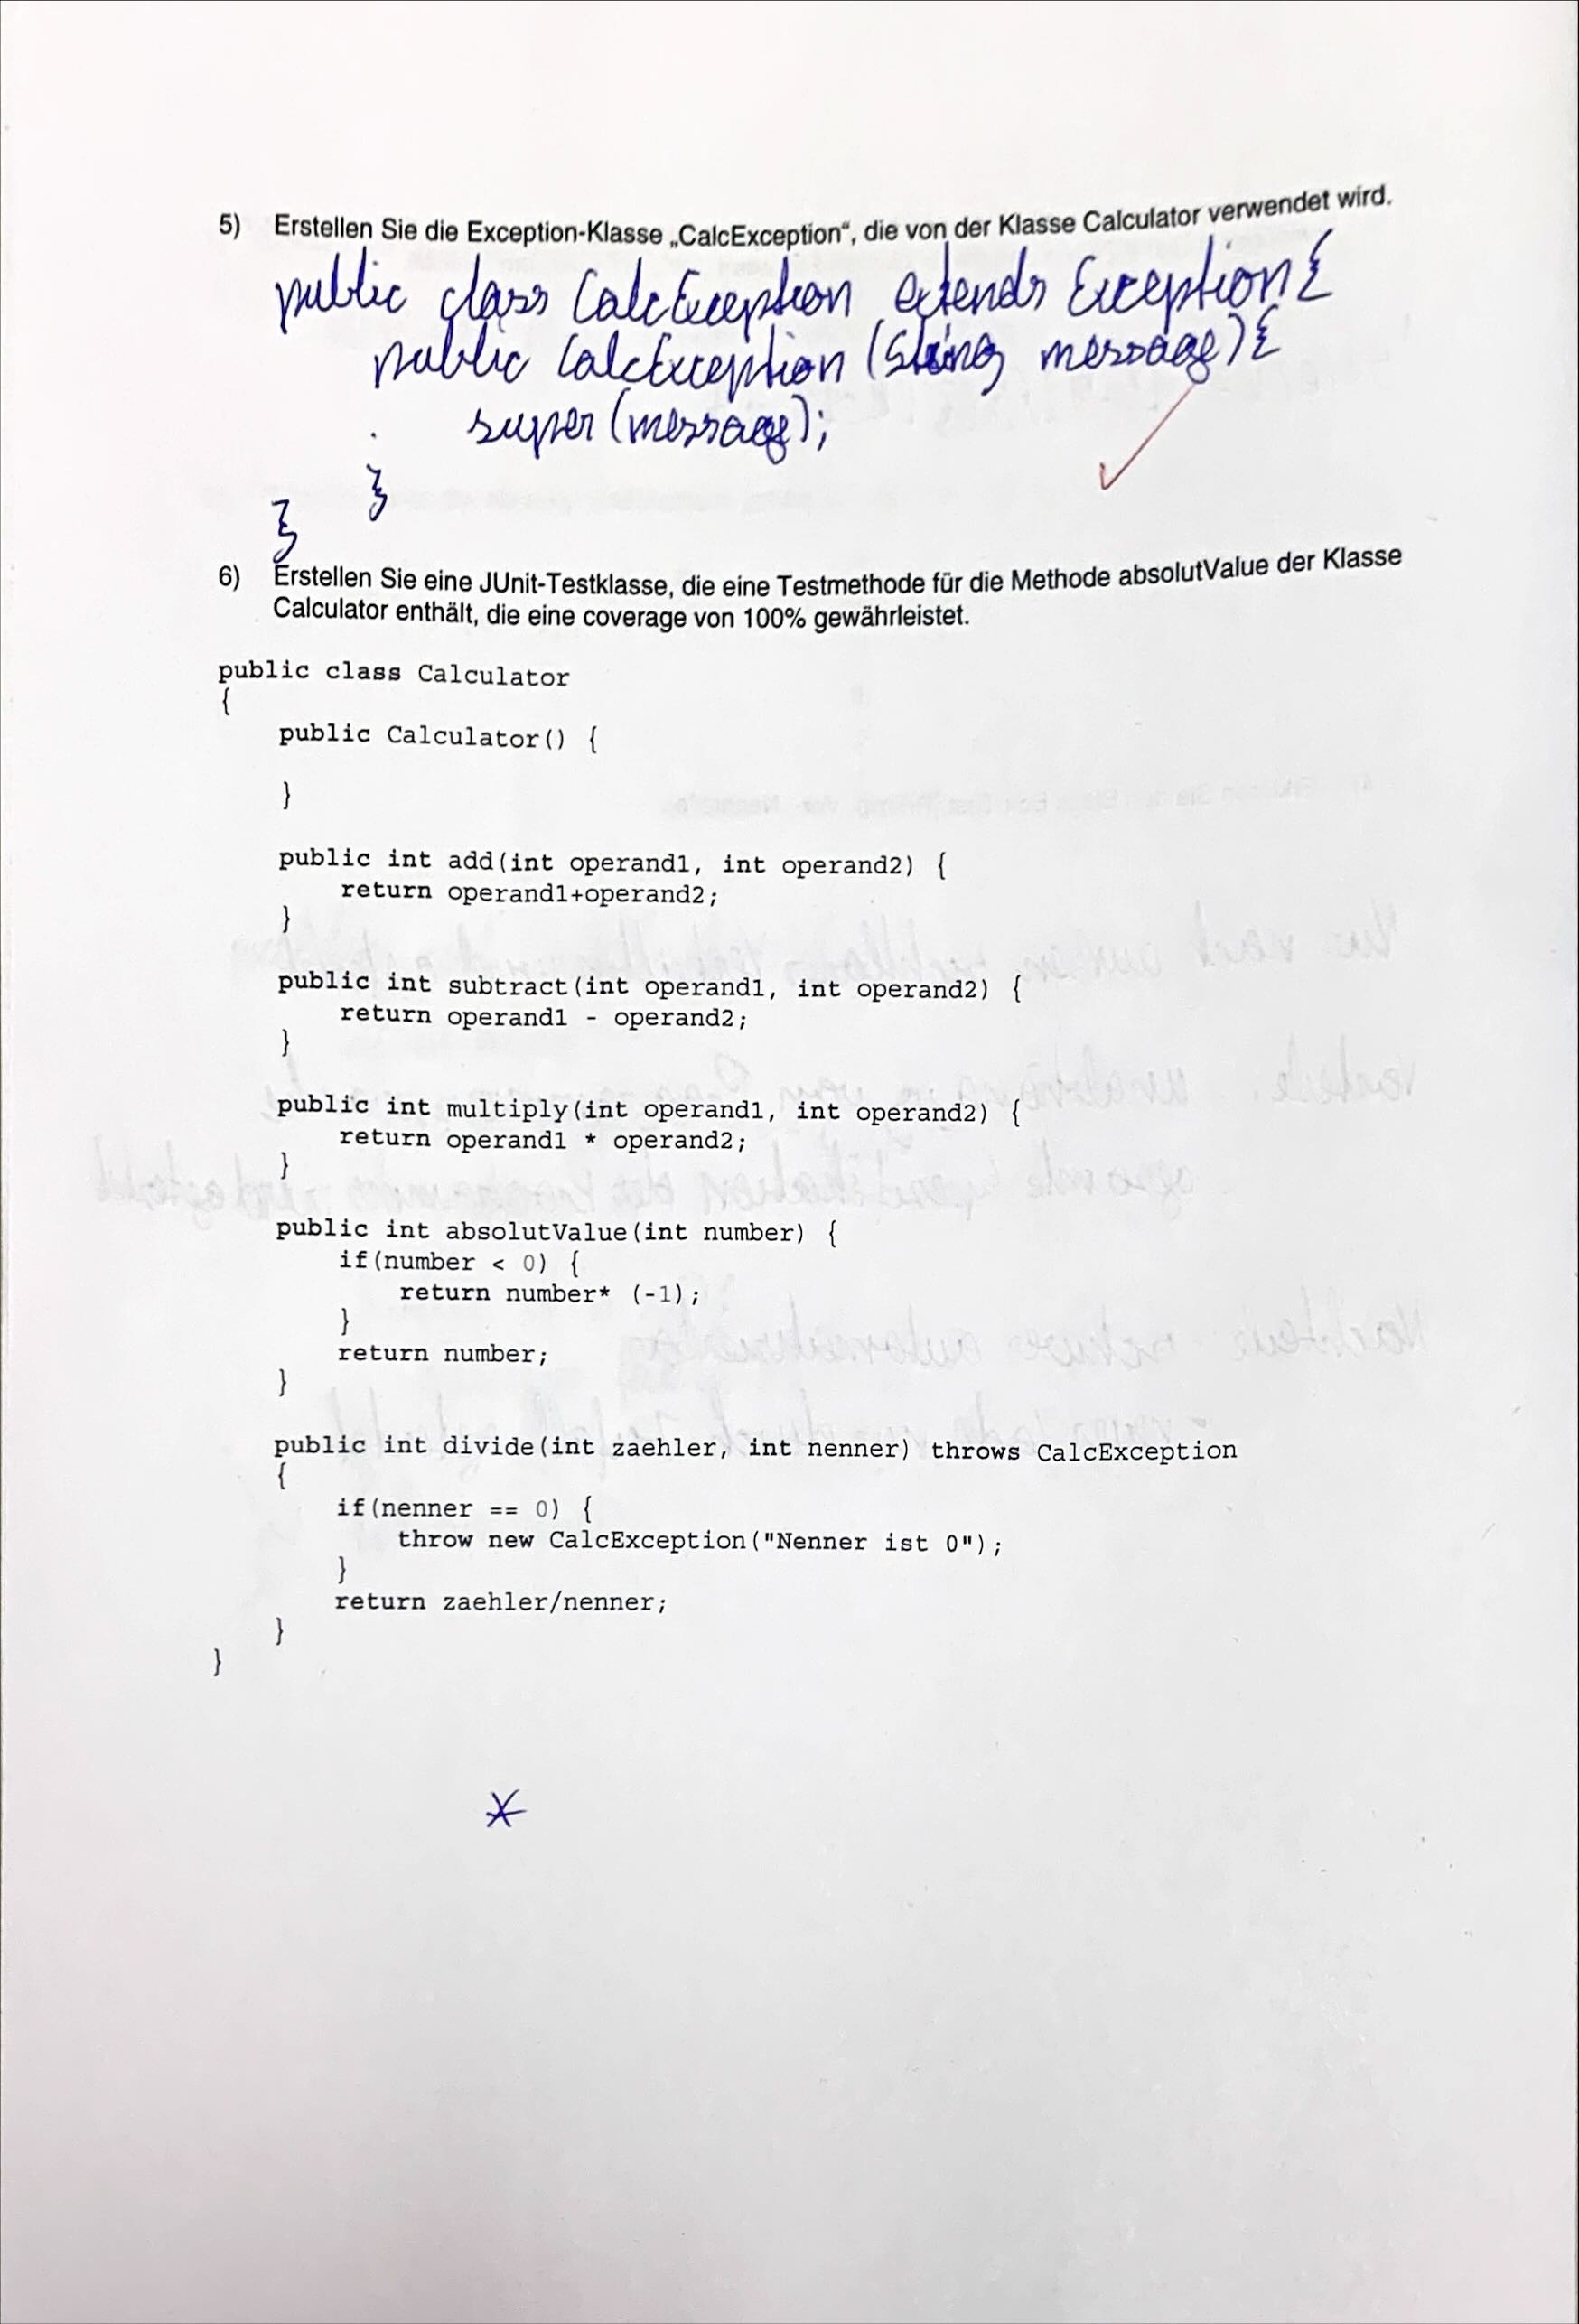 5) Erstellen Sie die Exception-Klasse „CalcException“, die von der Klasse Calculator verwendet wird.
public class CalcException extends Exception {
public CalcException (String message) {
super (message);
}
}
6) Erstellen Sie eine JUnit-Testklasse, die eine Testmethode für die Methode absolutValue der Klasse
Calculator enthält, die eine coverage von 100% gewährleistet.
public class Calculator
{
public Calculator() {
}
public int add(int operand1, int operand2) {
return operand1+operand2;
}
public int subtract(int operand1, int operand2) {
return operand1 - operand2;
}
public int multiply(int operand1, int operand2) {
return operand1 * operand2;
}
public int absolutValue(int number) {
if(number < 0) {
return number* (-1);
}
return number;
}
public int divide(int zaehler, int nenner) throws CalcException
{
if(nenner == 0) {
throw new CalcException("Nenner ist 0");
}
return zaehler/nenner;
}
}
*